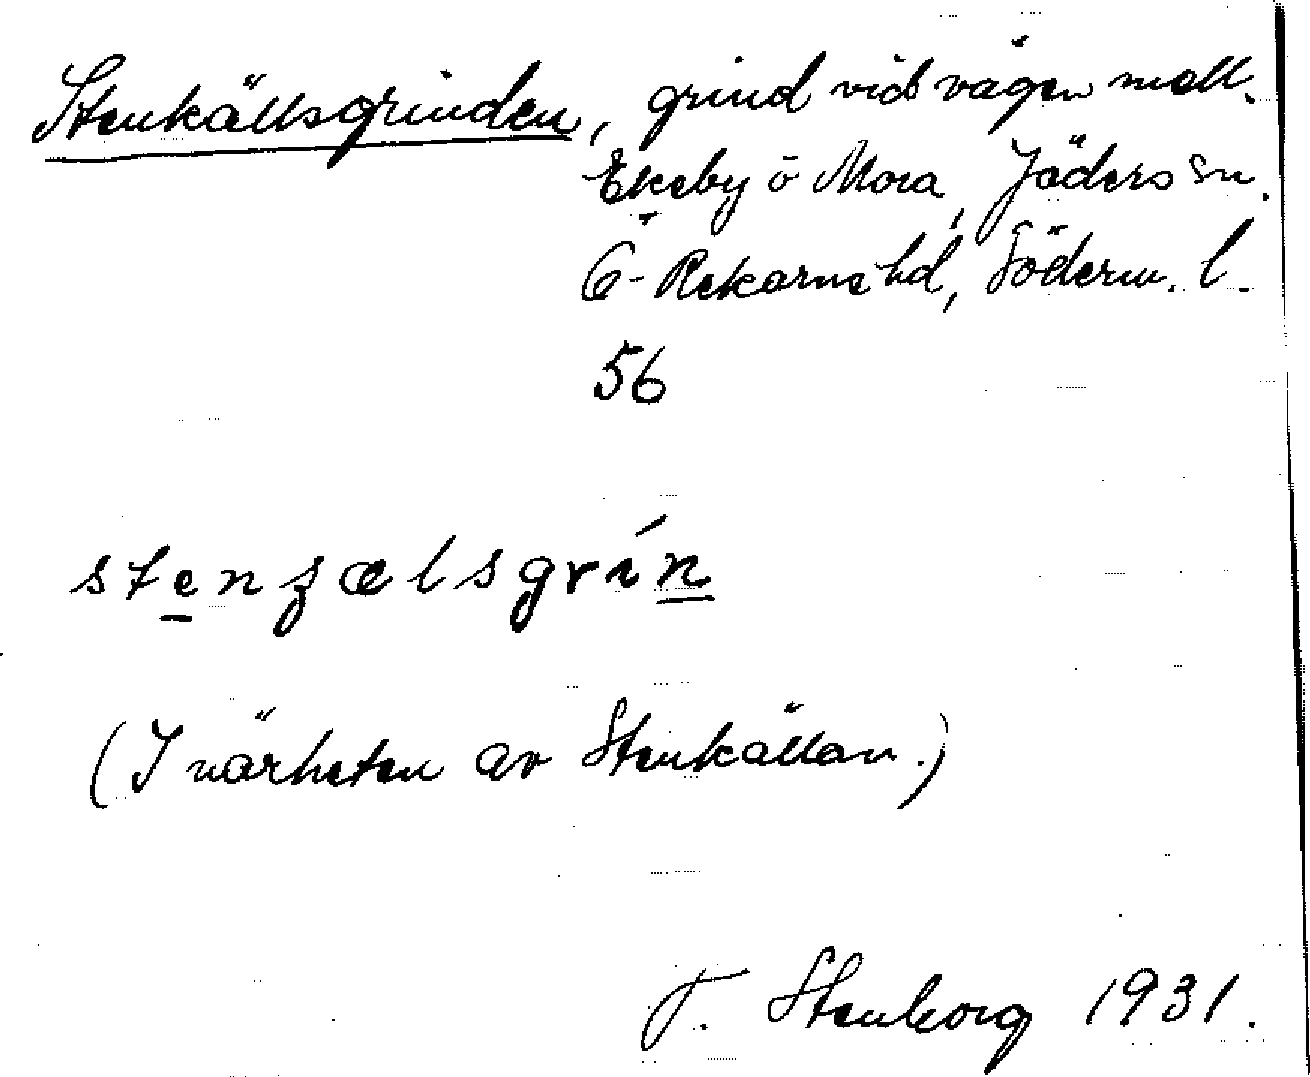 Stenkällsgrinden, grind vid vägen mell.
Ekeby o Mora, Jäders sn.
Ö-Rekarne hd, Söderm. l.
56
stenʒælsgrín
(I närheten av Stenkällan.)
T. Stenborg 1931.